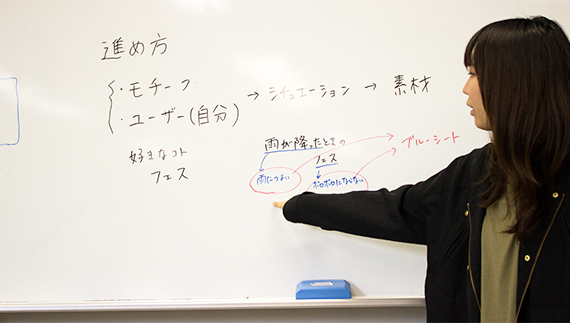 進め方
・モチーフ
・ユーザー(自分)
→ シチュエーション → 素材
好きなコト
フェス
雨が降ったときの
フェス
雨につよい
ボロボロにならない
ブルーシート